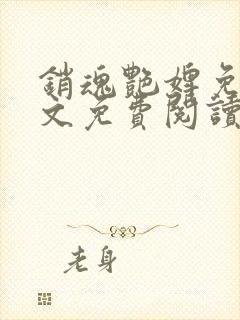 銷魂艷婢免
文免費閱讀
老身